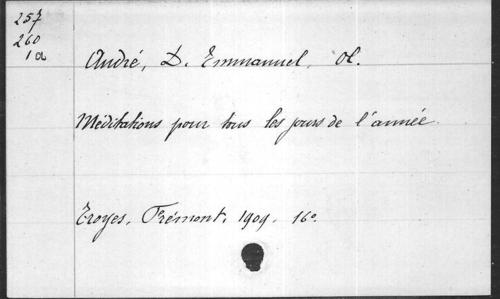 257
260
1a
André, D. Emmanuel, Ol.
Méditations pour tous les jours de l'année.
Troyes, Frémont, 1909. 16º.